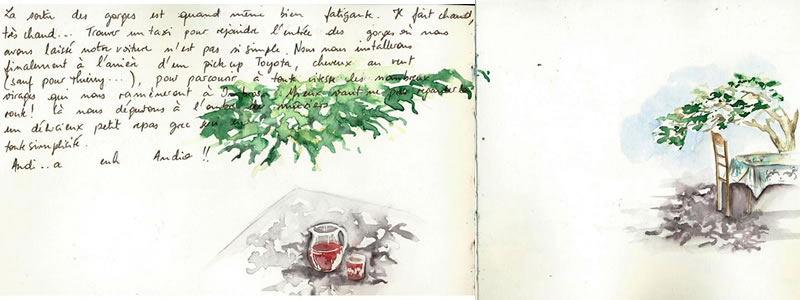 La sortie des gorges est quand même bien fatigante. Il fait chaud,
très chaud... Trouver un taxi pour rejoindre l'entrée des gorges où nous
avons laissé notre voiture n'est pas si simple. Nous nous installerons
finalement à l'arrière d'un pick up Toyota, cheveux au vent
(sauf pour Thierry...), pour parcourir à toute vitesse les nombreux
virages qui nous ramèneront à mieux vaut ne pas regarder la
route! Là nous dégustons à l'ombre des muriers
un délicieux petit repas grec
toute simplicité.
Andi..a euh Andio!!